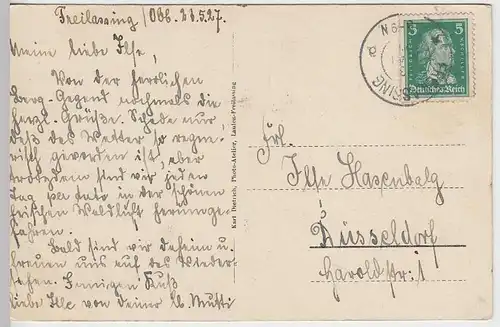 Freilassing / Obb. 21.5.27.
Meine liebe Ilse,
Von der herrlichen
Berg-Gegend nochmals die
herzl. Grüße. Schade nur,
daß das Wetter so regne-
risch geworden ist, aber
trotzdem sind wir jeden
Tag per Auto in der schönen
frischen Waldluft herumge-
fahren.
Bald sind wir daheim u.
freuen uns auf das Wieder-
sehen. Innigen Kuß
liebe Ilse von Deiner lb. Mutti
Karl Dietrich, Photo-Atelier, Laufen-Freilassing
5 5
Deutsches Reich
Frl.
Ilse Hasenbalg
Düsseldorf
Haroldstr. 1